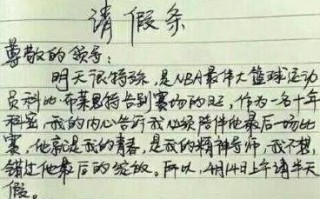 请假条
尊敬的领导:
明天很特殊,是NBA最伟大篮球运动
员科比·布莱恩特告别赛场的日子,作为一名十年
科蜜,我的内心告诉我必须陪伴他最后一场比
赛,他就是我的青春,是我的精神导师,我不想
错过他最后的绽放。所以,4月14日上午请半天
假。